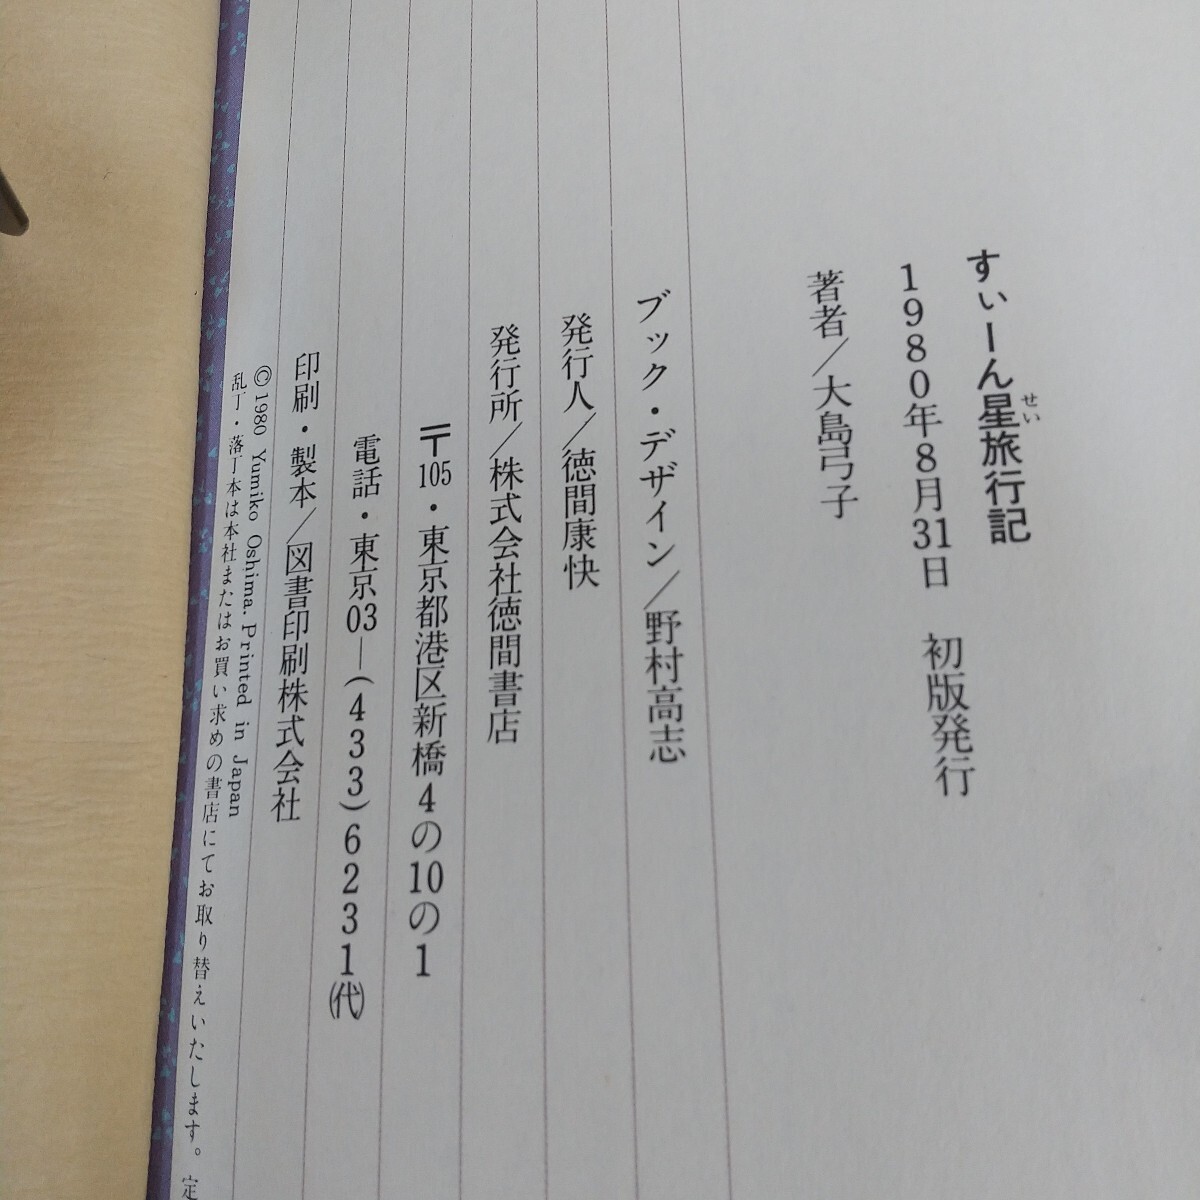 すぃーん星旅行記
せい
1980年8月31日　初版発行
著者／大島弓子
ブック・デザイン／野村高志
発行人／徳間康快
発行所／株式会社徳間書店
〒105・東京都港区新橋4の10の1
電話・東京03―(433)6231(代)
印刷・製本／図書印刷株式会社
©1980 Yumiko Oshima. Printed in Japan
乱丁・落丁本は本社またはお買い求めの書店にてお取り替えいたします。定